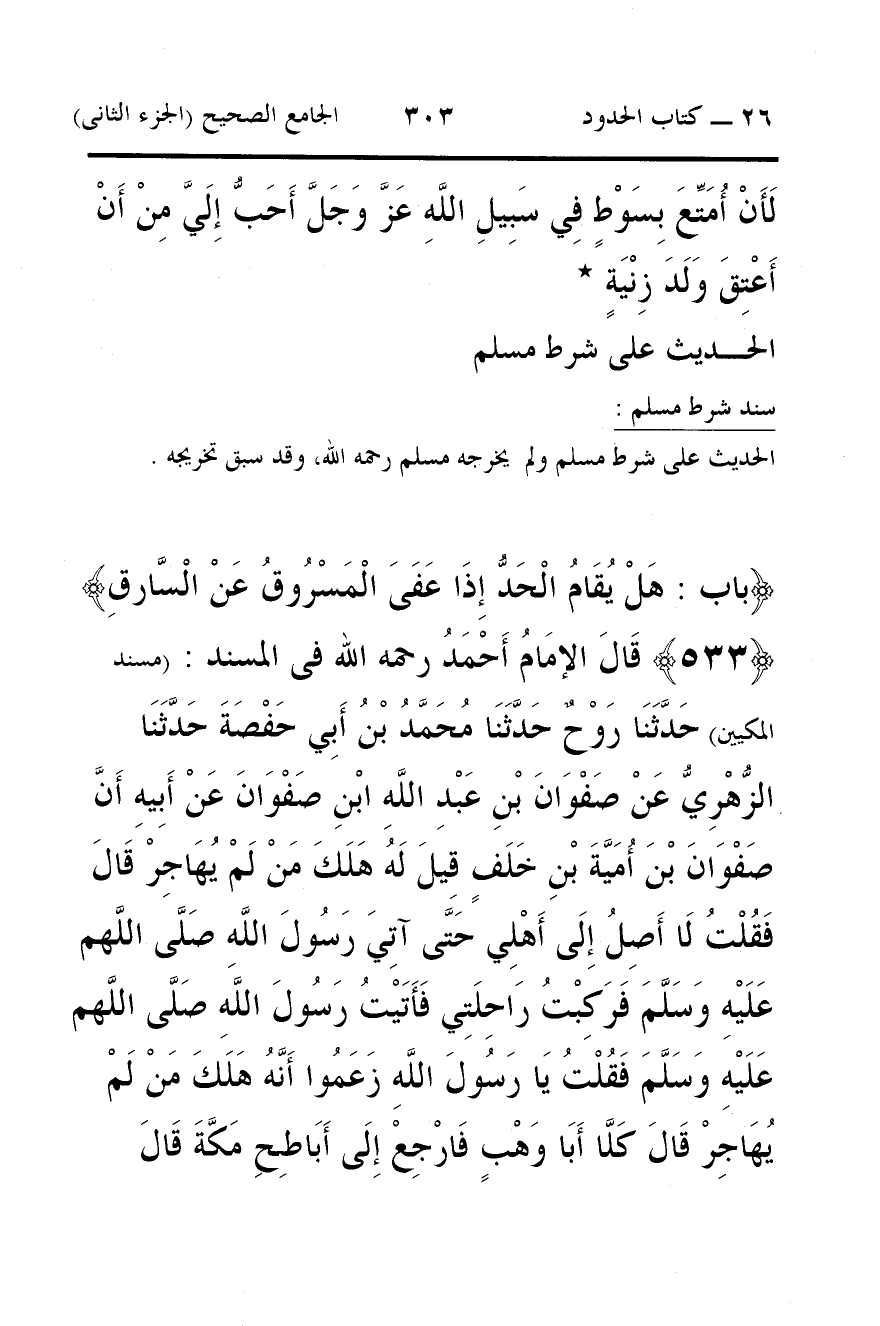 ٢٦ ــ كتاب الحدود ٣٠٣ الجامع الصحيح (الجزء الثانى)
لَأَنْ أُمَتِّعَ بِسَوْطٍ فِي سَبِيلِ اللَّهِ عَزَّ وَجَلَّ أَحَبُّ إِلَيَّ مِنْ أَنْ
أَعْتِقَ وَلَدَ زِنْيَةٍ *
الحــديث على شرط مسلم
سند شرط مسلم :
الحديث على شرط مسلم ولم يخرجه مسلم رحمه الله، وقد سبق تخريجه .
﴿باب : هَلْ يُقَامُ الْحَدُّ إِذَا عَفَىَ الْمَسْرُوقُ عَنْ الْسَّارقِ﴾
﴿٥٣٣﴾ قَالَ الإِمَامُ أَحْمَدُ رحمه الله فى المسند : (مسند
المكيين) حَدَّثَنَا رَوْحٌ حَدَّثَنَا مُحَمَّدُ بْنُ أَبِي حَفْصَةَ حَدَّثَنَا
الزُّهْرِيُّ عَنْ صَفْوَانَ بْنِ عَبْدِ اللَّهِ ابْنِ صَفْوَانَ عَنْ أَبِيهِ أَنَّ
صَفْوَانَ بْنَ أُمَيَّةَ بْنِ خَلَفٍ قِيلَ لَهُ هَلَكَ مَنْ لَمْ يُهَاجِرْ قَالَ
فَقُلْتُ لَا أَصِلُ إِلَى أَهْلِي حَتَّى آتِيَ رَسُولَ اللَّهِ صَلَّى اللَّهم
عَلَيْهِ وَسَلَّمَ فَرَكِبْتُ رَاحِلَتِي فَأَتَيْتُ رَسُولَ اللَّهِ صَلَّى اللَّهم
عَلَيْهِ وَسَلَّمَ فَقُلْتُ يَا رَسُولَ اللَّهِ زَعَمُوا أَنَّهُ هَلَكَ مَنْ لَمْ
يُهَاجِرْ قَالَ كَلَّا أَبَا وَهْبٍ فَارْجِعْ إِلَى أَبَاطِحِ مَكَّةَ قَالَ